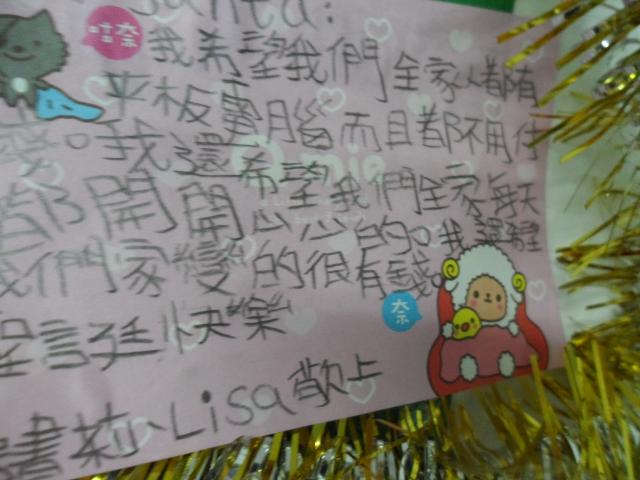 Santa:
我希望我們全家人都有
平板電腦而且都不用付
錢。我還希望我們全家每天
都開開心心的。我還希望
我們家變的很有錢。
聖誔快樂
Lisa敬上
奈
奈